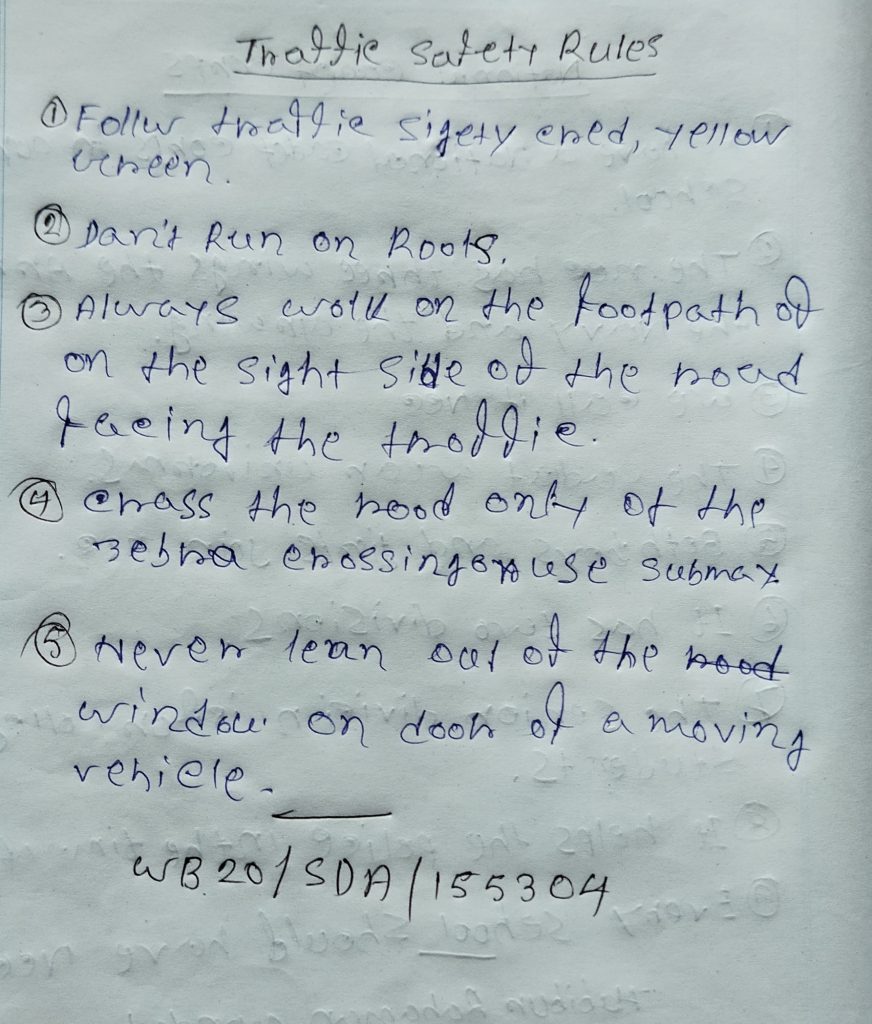 Traffic Safety Rules
① Follw traffic sigety ered, yellow
Green.
② Dan't Run on Roots.
③ Always wolk on the footpath of
on the sight side of the road
facing the traffic.
④ crass the rood only of the
zebra crossing or use submax
⑤ Never lean out of the rood
window on door of a moving
vehicle.
WB 20/SDA/155304